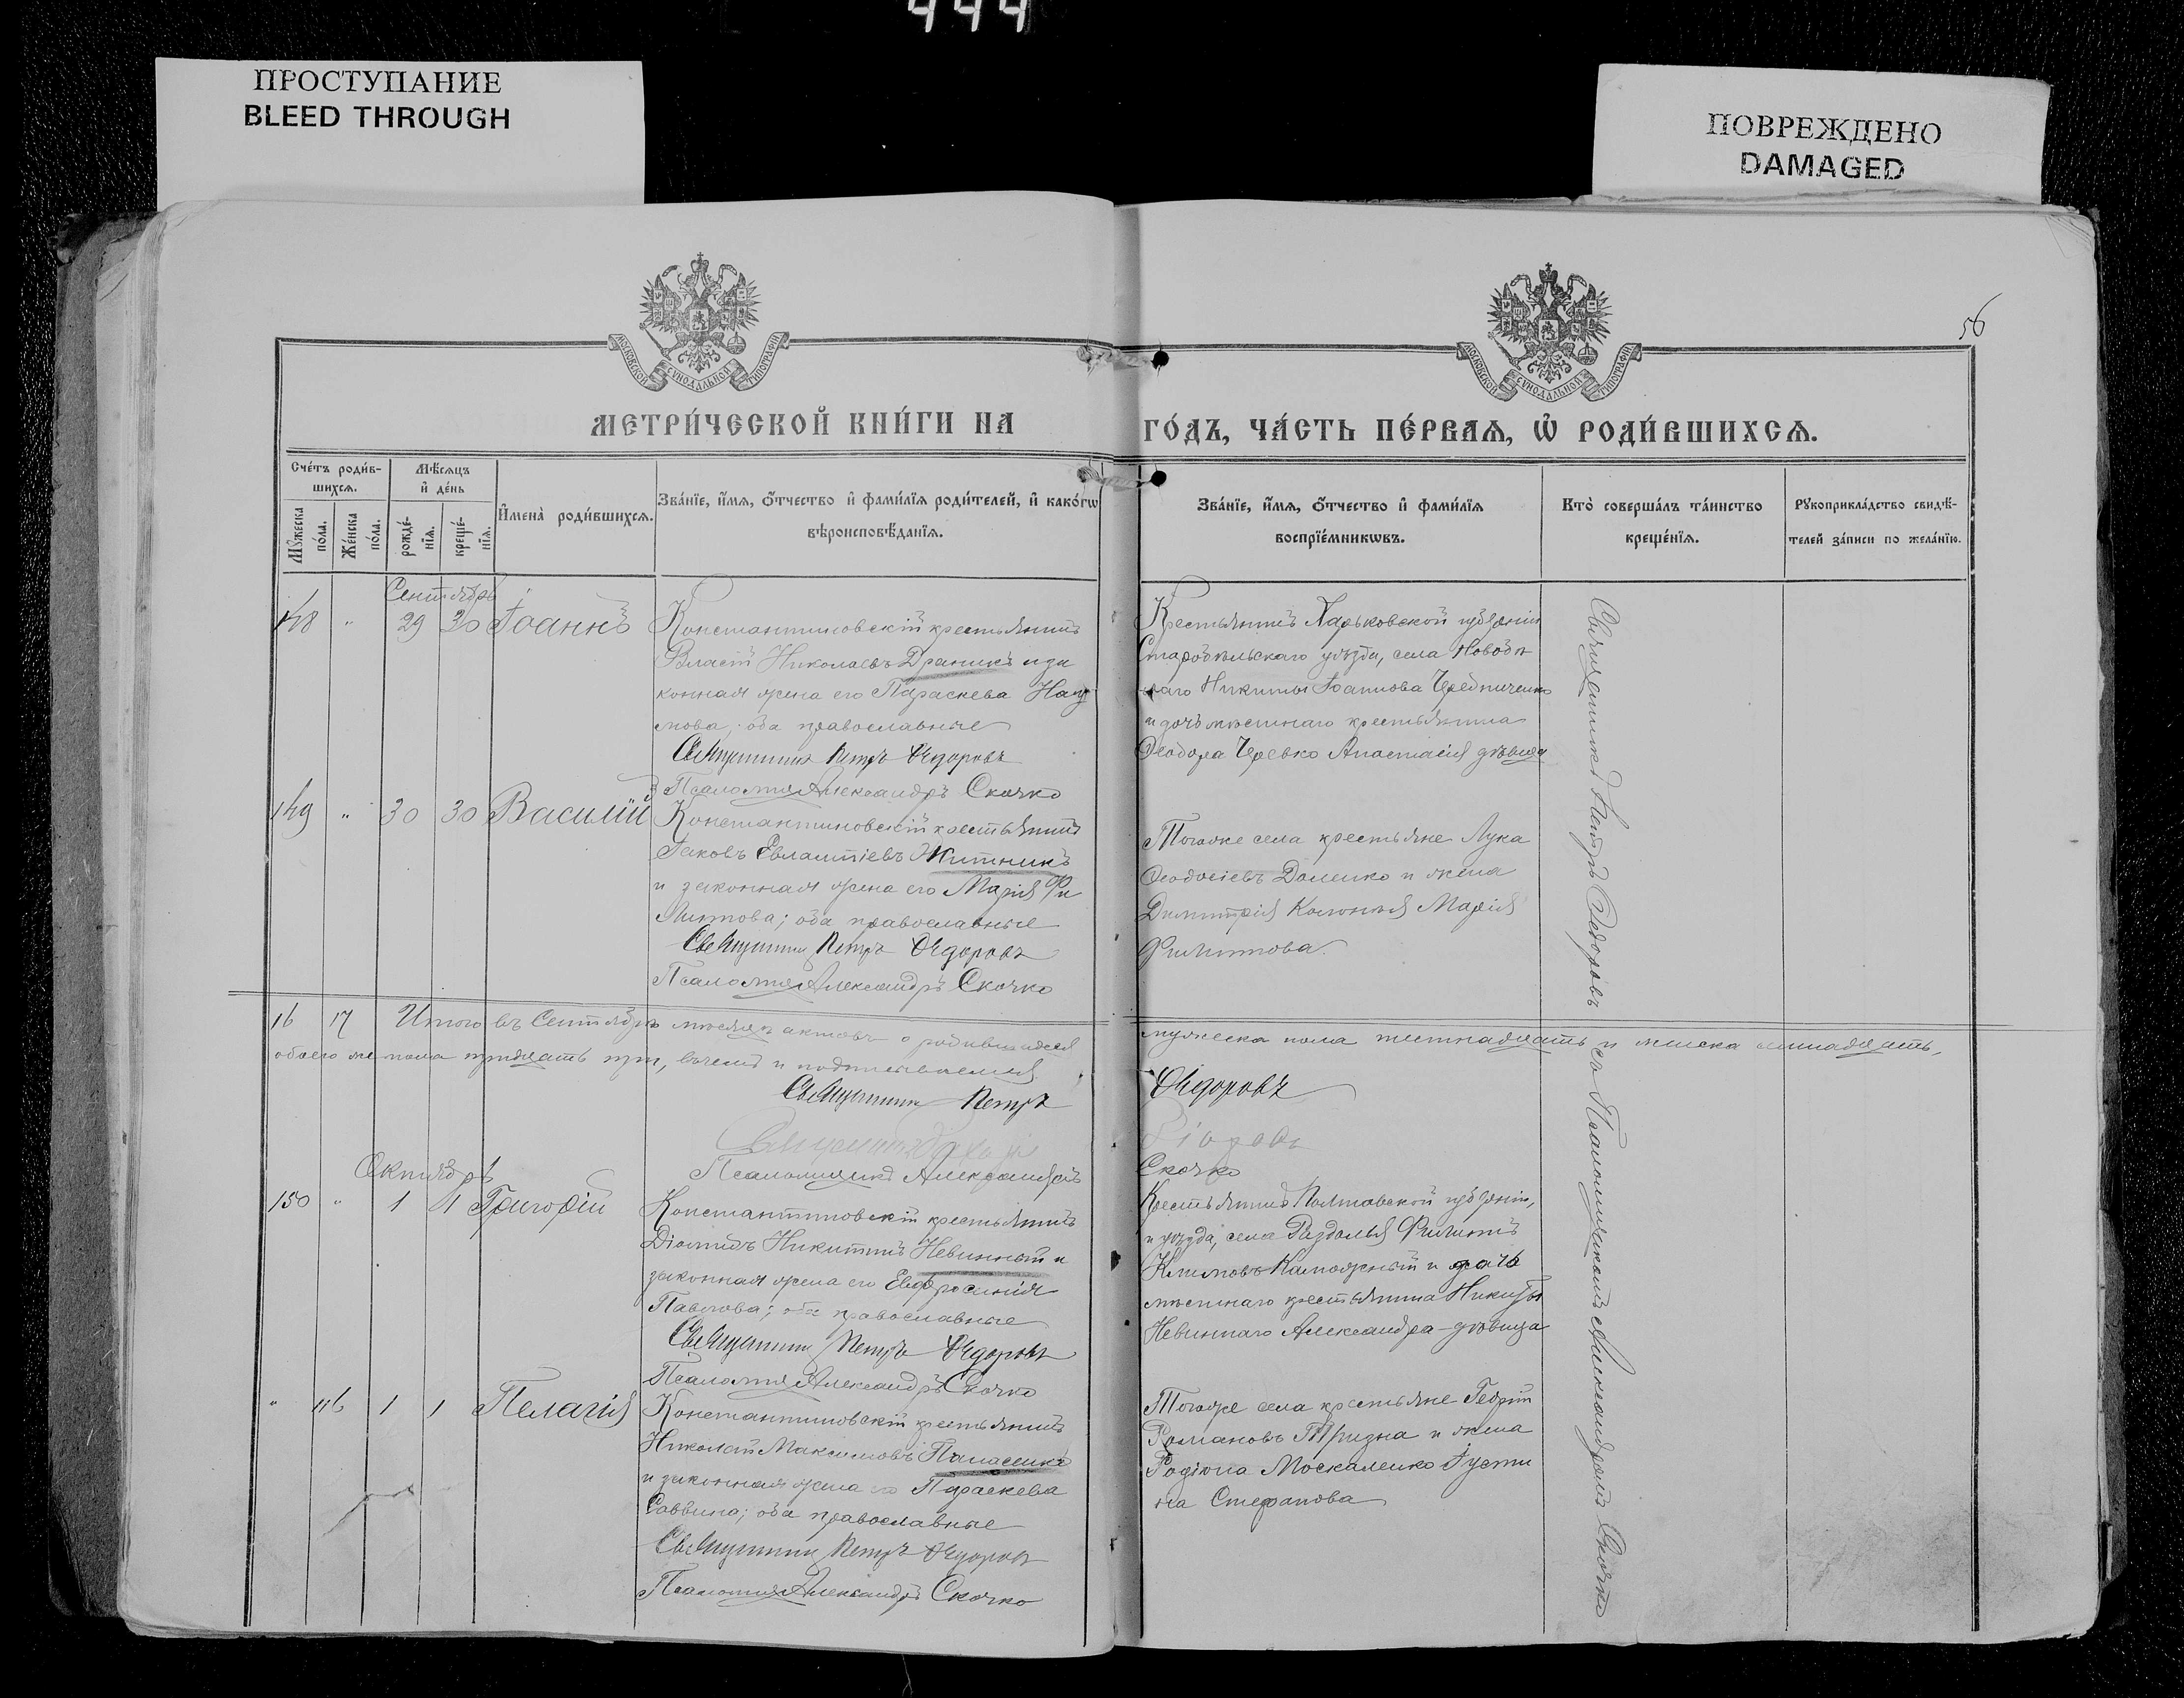 444
ПРОСТУПАНИЕ
BLEED THROUGH
ПОВРЕЖДЕНО
DAMAGED
56
МОСКОВСКОЙ СУНОДАЛЬНОЙ ТИПОГРАФІИ
МОСКОВСКОЙ СУНОДАЛЬНОЙ ТИПОГРАФІИ
МЕТРИ́ЧЕСКОЙ КНИ́ГИ НА
ГО́ДЪ, ЧА́СТЬ ПЕ́РВАЯ, Ѡ РОДИ́ВШИХСЯ.
Сче́тъ роди́в-
шихся.
Мѣ́сяцъ
и҆ де́нь
Мꙋ́жеска
по́ла.
Же́нска
по́ла.
рожде́-
нїя.
креще́-
нїя.
И҆мена̀ роди́вшихся.
Зва́нїе, и҆́мя, ѻ҆́тчество и҆ фами́лїя роди́телей, и҆ како́гѡ
вѣроисповѣ́данїя.
Зва́нїе, и҆́мя, ѻ҆́тчество и҆ фами́лїя
воспрїе́мникѡвъ.
Кто̀ соверша́лъ та́инство
креще́нїя.
Рꙋкоприкла́дство свидѣ́-
телей за́писи по жела́нїю.
Сентябрь
148 " 29 30 Іоаннъ
Константиновскій крестьянинъ
Власій Николаевъ Драникъ и за
конная жена его Параскева Нау
мова; оба православные
Священникъ Петръ Ѳедоровъ
Псаломщ. Александръ Скочко
Крестьянинъ Харьковской губерніи
Старобѣльскаго уѣзда, села Новобѣ
лаго Никиты Іоаннова Чередниченко
и дочь мѣстнаго крестьянина
Ѳеодора Черевко Анастасія дѣвица
149 " 30 30 Василій
Константиновскій крестьянинъ
Іаковъ Евлампіевъ Житникъ
и законная жена его Марія Фи
липпова; оба православные
Священник Петръ Ѳедоровъ
Псаломщ. Александръ Скочко
Тогоже села крестьяне Лука
Ѳеодосіевъ Доленко и жена
Димитрія Марія
Филиппова.
16 17 Итого въ Сентябрѣ мѣсяцѣ актовъ о родившихся
мужеска пола шестнадцать и женска семнадцать,
обоего же пола тридцать три, вѣчемъ и подписываемся
Священник Петръ
Ѳедоровъ
Псаломщикъ Александръ
Скочко
Октябрь
150 " 1 1 Григорій
Константиновскій крестьянинъ
Діомидъ Никитинъ Невинный и
законная жена его Евфросинія
Павлова; оба православные
Священник Петръ Ѳедоровъ
Псаломщ. Александръ Скочко
Крестьянинъ Полтавской губерніи,
и уѣзда, села Филиппъ
Климовъ и дочь
мѣстнаго крестьянина Никиты
Невиннаго Александра - дѣвица
" 116 1 1 Пелагія
Константиновскій крестьянинъ
Николай Максимовъ Панасенко
и законная жена его Параскева
Саввина; оба православные
Священник Петръ Ѳедоровъ
Псаломщ. Александръ Скочко
Тогоже села крестьяне
Романовъ Тризна и жена
Родіона Москаленко Іусти
на Стефанова
Священникъ Петръ Ѳедоровъ съ Псаломщикомъ Александромъ Скочко